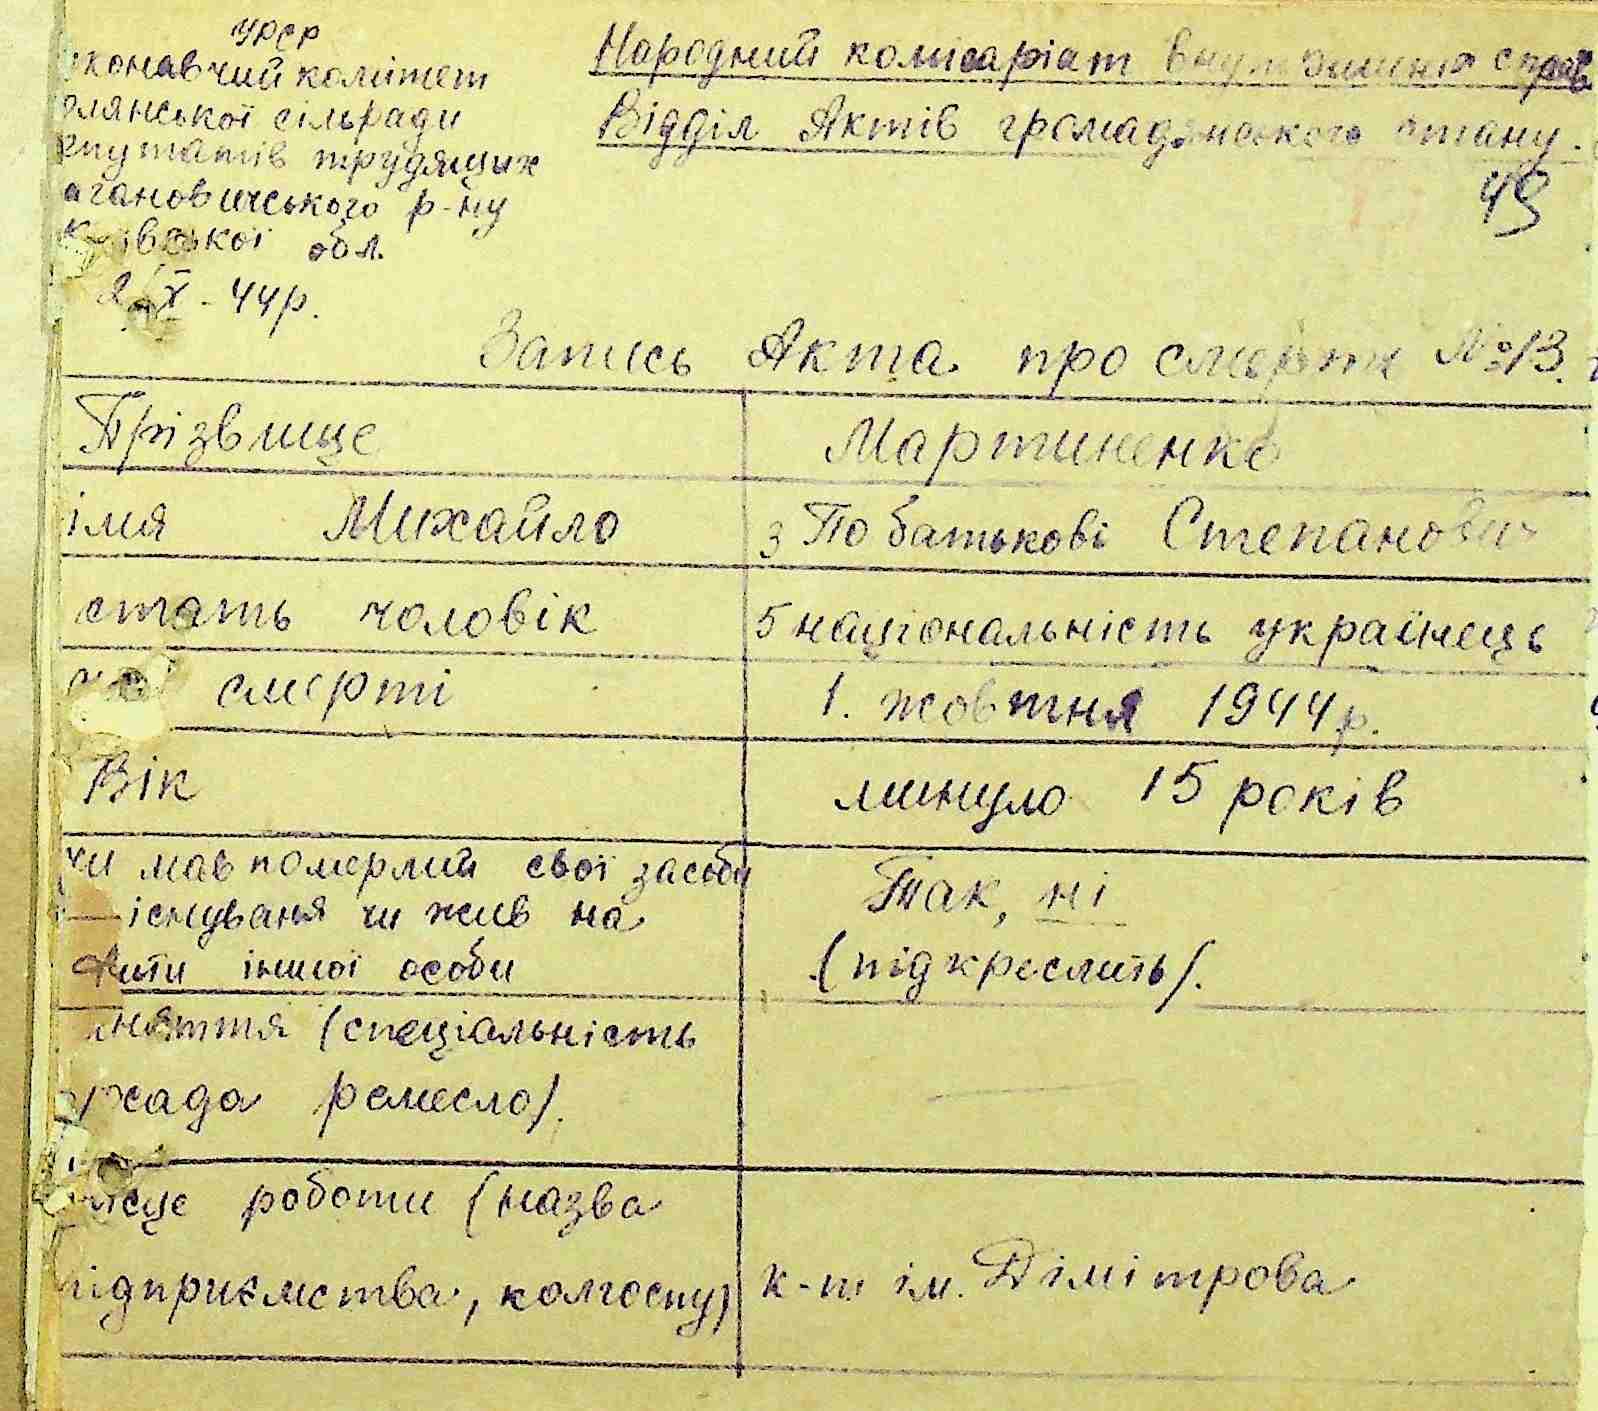 УРСР
конавчий комітет
лянської сільради
епутатів трудящих
агановичського р-ну
обл.
Х - 44р.
Народний комісаріат внутрішніх справ
Відділ Актів громадянського стану.
49
Запись Акта про смерть №13.
Прізвище Мартиненко
імя Михайло 3 По батькові Степанович
стать чоловік 5 національність українець
смерті 1. жовтня 1944р.
Вік минуло 15 років
чи мав померлий свої засоби
існуваня чи жив на
іншої особи
Так, ні
(підкреслить).
няття (спеціальність
сада ремесло).
ісце роботи (назва
ідприємства, колгоспу) к-п ім. Дімітрова